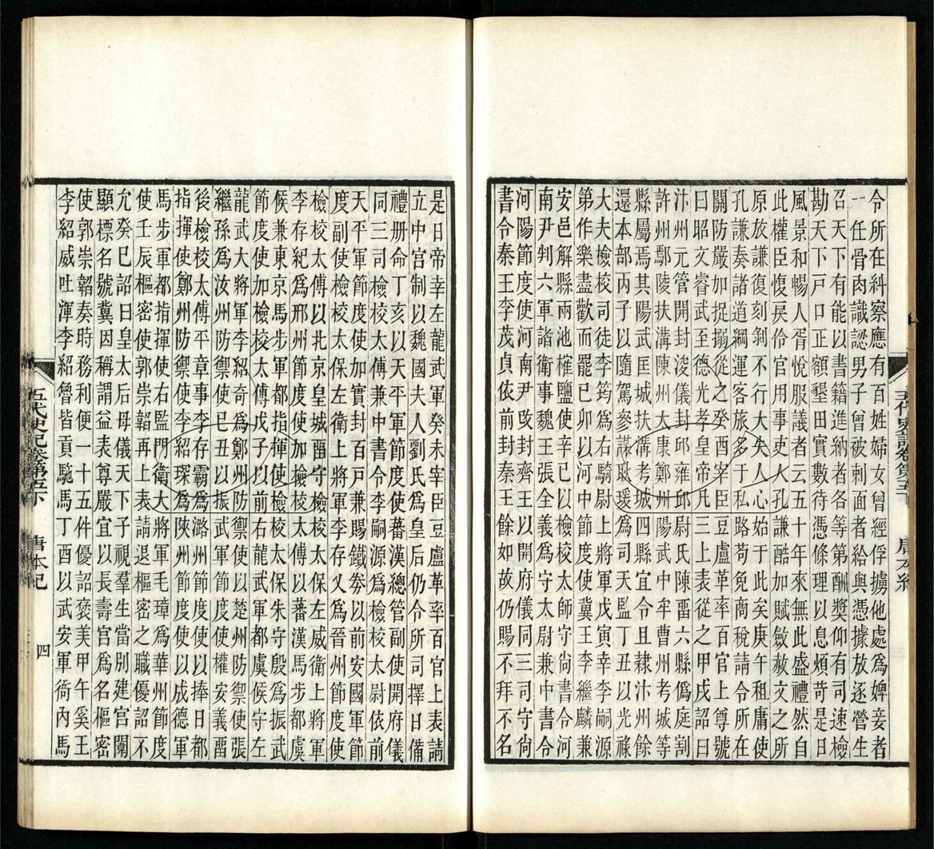 令所在糾察應有百姓婦女曾經俘擄他處爲婢妾者
一任骨肉識認男子曾被刺面者給與憑據放逐營生
召天下有能以書籍進納者各等第酬獎仰有司速檢
勘天下戶口正額墾田實數待憑條理以息煩苛是日
風景和暢人胥悅服議者云五十年來無此盛禮然自
此權臣愎戾伶官用事吏人孔謙酷加賦斂赦文之所
原放謙復刻剝不行大失人心始于此矣庚午租庸使
孔謙奏諸道綱運客旅多于私路苟免商稅請令所在
關防嚴加捉搦從之癸酉宰臣豆盧革率百官上尊號
曰昭文睿武至德光孝皇帝凡三上表從之甲戌詔曰
汴州元管開封浚儀封邱雍邱尉氏陳畱六縣僞庭割
許州鄢陵扶溝陳州太康鄭州陽武中牟曹州考城等
縣屬焉其陽武匡城扶溝考城四縣宜令且隸汴州餘
還本部丙子以隨駕參謀耿瑗爲司天監丁丑以光祿
大夫檢校司徒李筠爲右騎尉上將軍戊寅幸李嗣源
第作樂盡歡而罷己卯以河中節度使冀王李繼麟兼
安邑解縣兩池榷鹽使辛巳以檢校太師守尚書令河
南尹判六軍諸衛事魏王張全義爲守太尉兼中書令
河陽節度使河南尹改封齊王以開府儀同三司守尚
書令秦王李茂貞依前封秦王餘如故仍賜不拜不名
是日帝幸左龍武軍癸未宰臣豆盧革率百官上表請
立中宮制以魏國夫人劉氏爲皇后仍令所司擇日備
禮册命丁亥以天平軍節度使蕃漢總管副使開府儀
同三司檢校太傅兼中書令李嗣源爲檢校太尉依前
天平軍節度使加實封百戶兼賜鐵劵以前安國軍節
度副使檢校太保左衛上將軍李存乂爲晉州節度使
檢校太傅以北京皇城畱守檢校太保左威衛上將軍
李存紀爲邢州節度使加檢校太傅以蕃漢馬步都虞
候兼東京馬步軍都指揮使檢校太保朱守殷爲振武
節度使加檢校太傅戊子以前右龍武軍都虞候守左
龍武大將軍李紹奇爲鄭州防禦使以楚州防禦使張
繼孫爲汝州防禦使己丑以振武軍節度使權安義畱
後檢校太傅平章事李存霸爲潞州節度使以捧日都
指揮使鄭州防禦使李紹琛爲陝州節度使以成德軍
馬步軍都指揮使右監門衛大將軍毛璋爲華州節度
使壬辰樞密使郭崇韜再上表請退樞密之職優詔不
允癸巳詔曰皇太后母儀天下子視羣生當別建宮闈
顯標名號冀因稱謂益表尊嚴宜以長壽宮爲名樞密
使郭崇韜奏時務利便一十五件優詔褒美甲午奚王
李紹威吐渾李紹魯皆貢駞馬丁酉以武安軍衙內馬
唐本紀
四